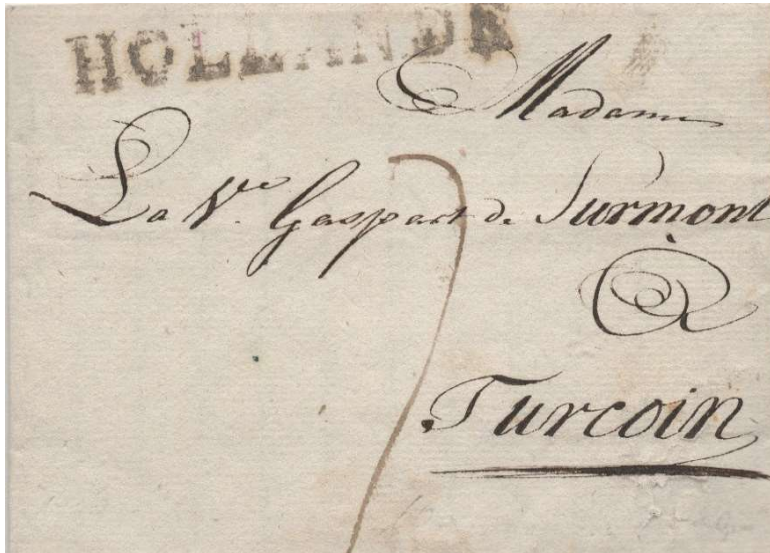 HOLLANDE
Madame
La Vve Gaspart de Surmont
à
Turcoin
7